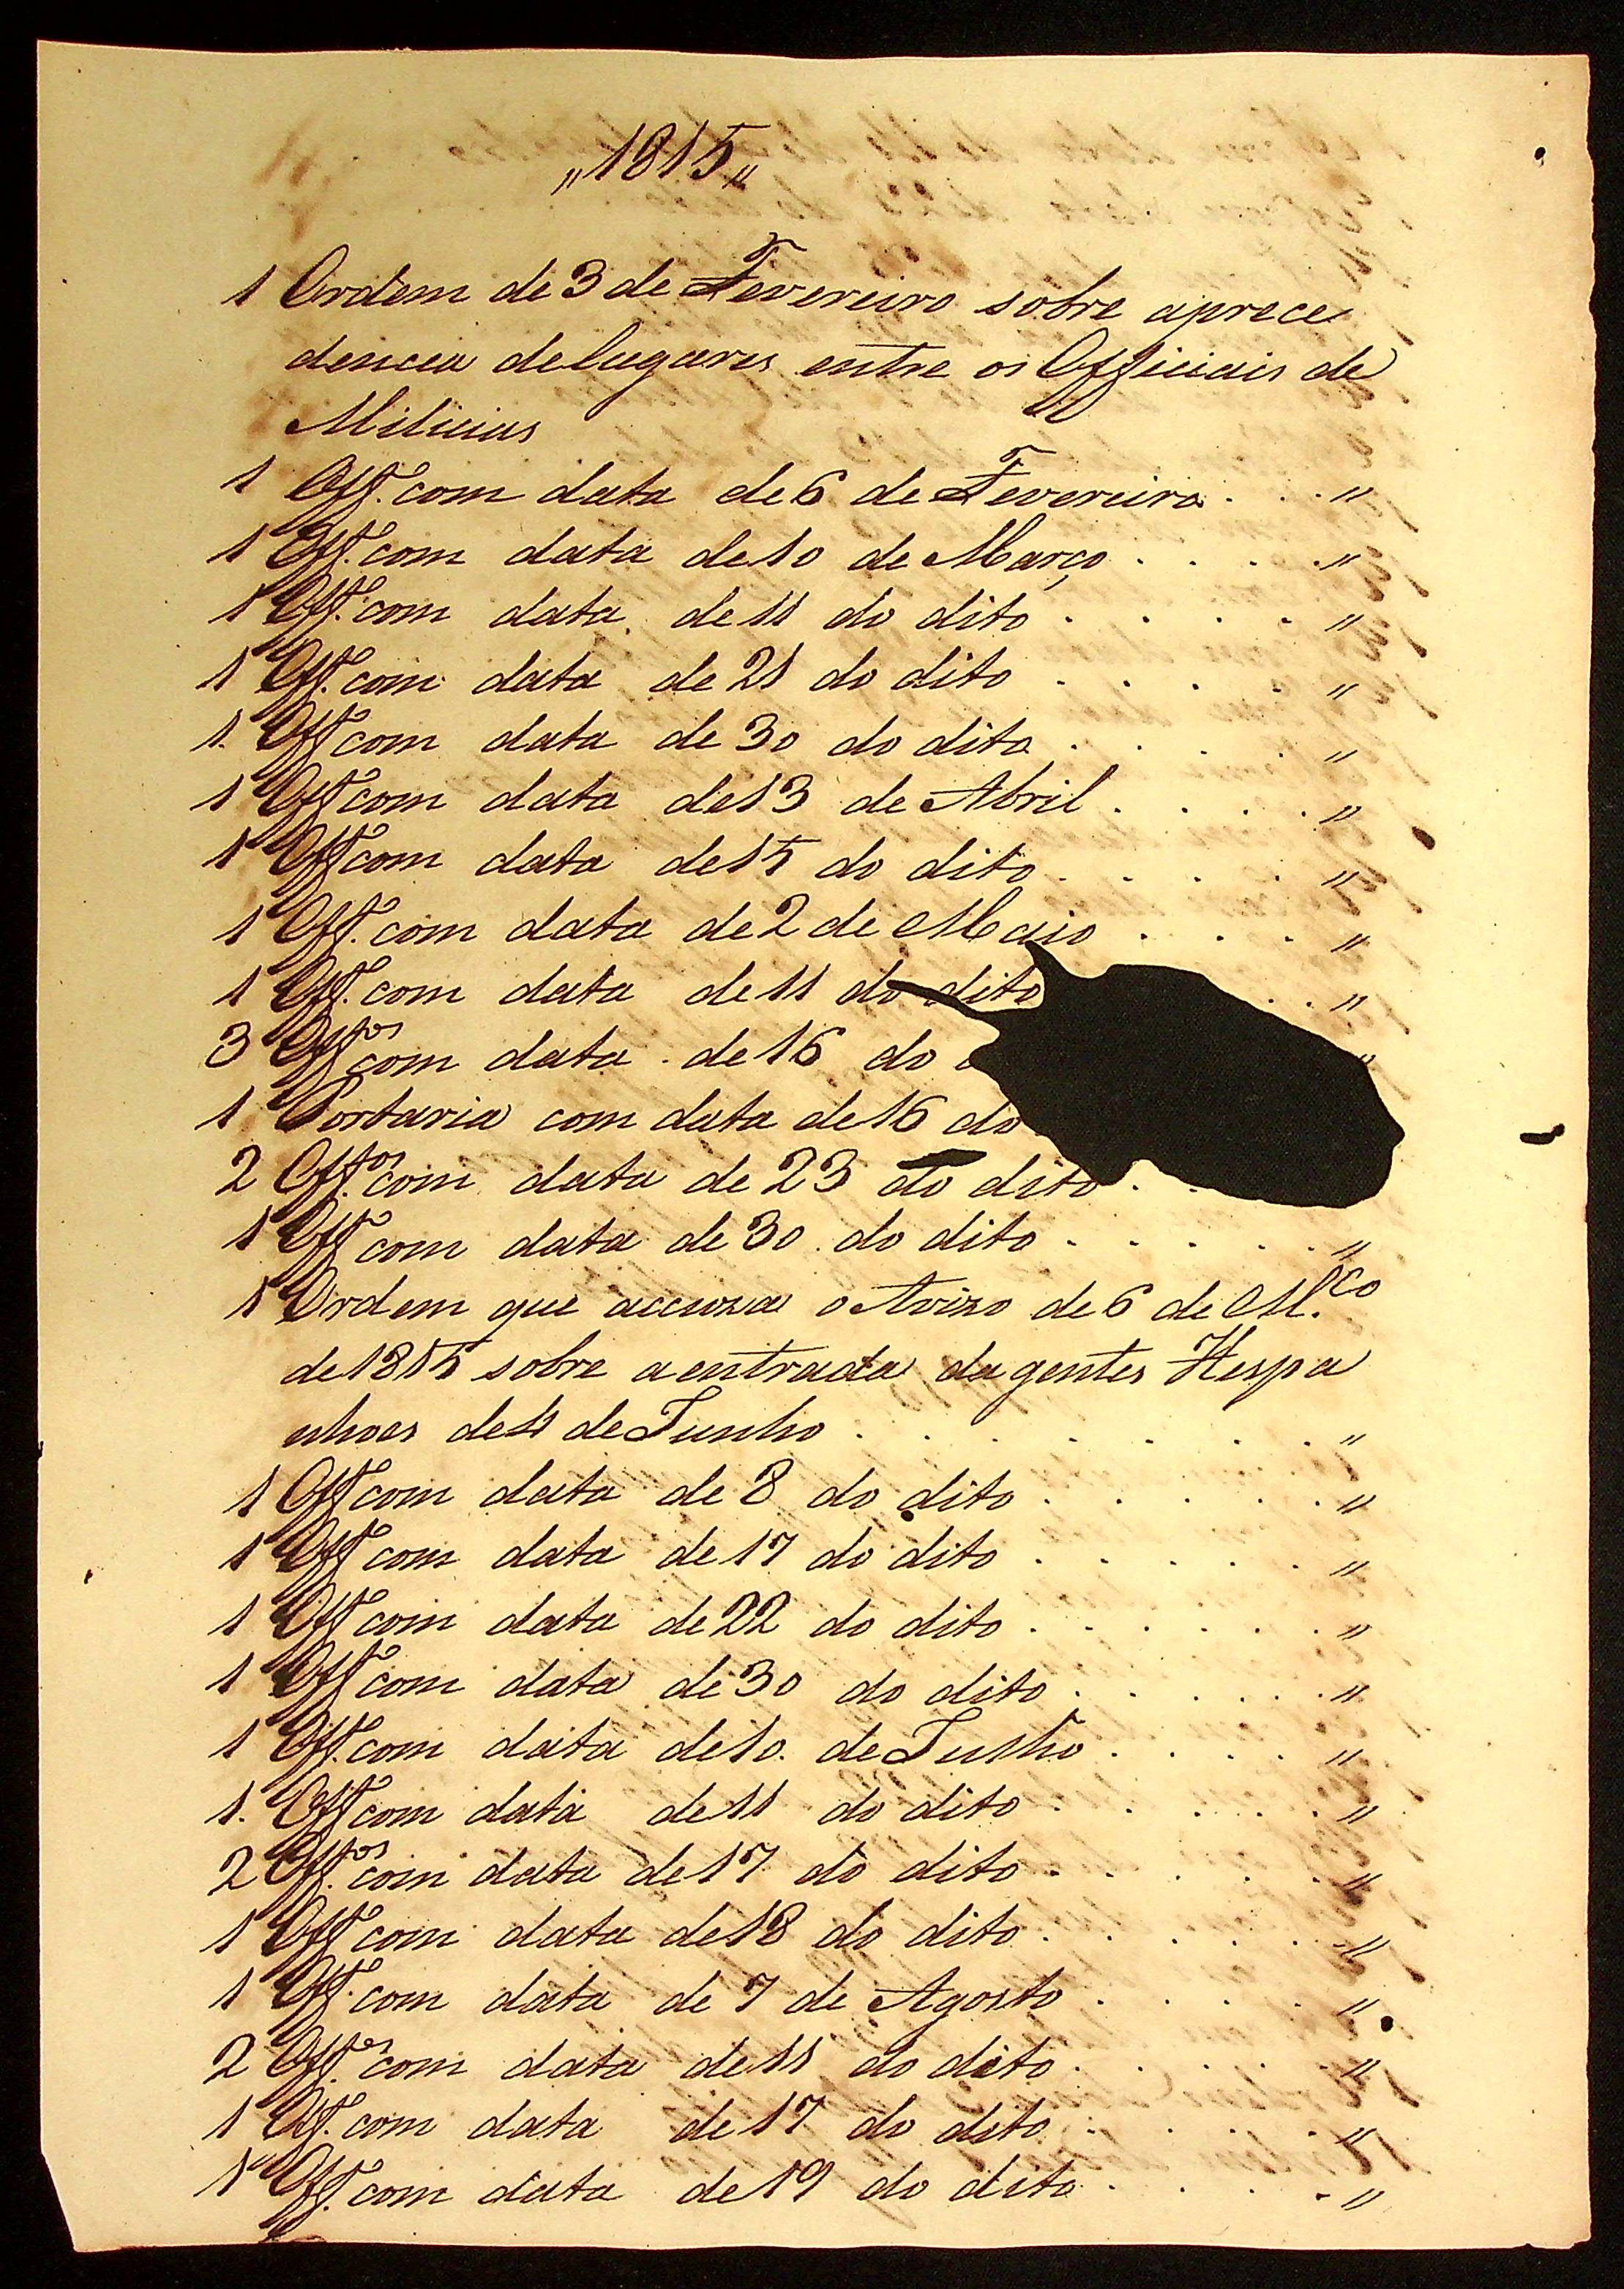 „1815„
1 Ordem de 3 de Fevereiro sobre aprece
dencia delugares entre os Officiais de
Milicias
1 Off.º com data de 6 de Fevereiro . . . „
1 Off.º com data de 10 de Março . . . . „
1 Off.º com data de 11 do dito . . . . „
1 Off.º com data de 21 do dito . . . . „
1. Off.º com data de 30 do dito . . . . „
1 Off.º com data de 13 de Abril . . . . „
1 Off.º com data de 15 do dito . . . . „
1 Off.º com data de 2 de Maio . . . . „
1 Off.º com data de 11 do dito . . „
3 Off.os com data de 16 do „
1 Portaria com data de 16 do
2 Off.os com data de 23 do dito . .
1 Off.º com data de 30 do dito . . . . . „
1 Ordem que accusa o Avizo de 6 de M.ço
de 1815 sobre aentrada da gentes Hespa
nhoes de de Junho . . . . . . . „
1 Off.º com data de 8 do dito . . . . . „
1 Off.º com data de 17 do dito . . . . . „
1 Off.º com data de 22 do dito . . . . . . „
1 Off.º com data de 30 do dito . . . . . „
1 Off.º com data de 10. de Julho . . . . „
1. Off.º com data de 11 do dito . . . . . „
2 Off.os com data de 17 do dito . . . . . „
1 Off.º com data de 18 do dito . . . . . „
1 Off.º com data de 7 de Agosto . . . . „
2 Off.os com data de 11 do dito . . . . . „
1 Off.º com data de 17 do dito . . . . „
1 Off.º com data de 19 do dito . . . . „